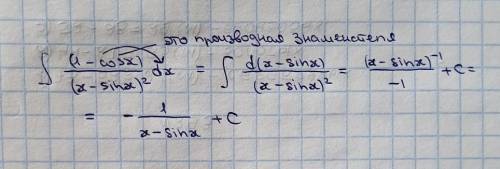 это производная знаменателя
∫ (1 - cosx) / (x - sinx)² dx = ∫ d(x - sinx) / (x - sinx)² = (x - sinx)⁻¹ / -1 + C =
= - 1 / x - sinx + C